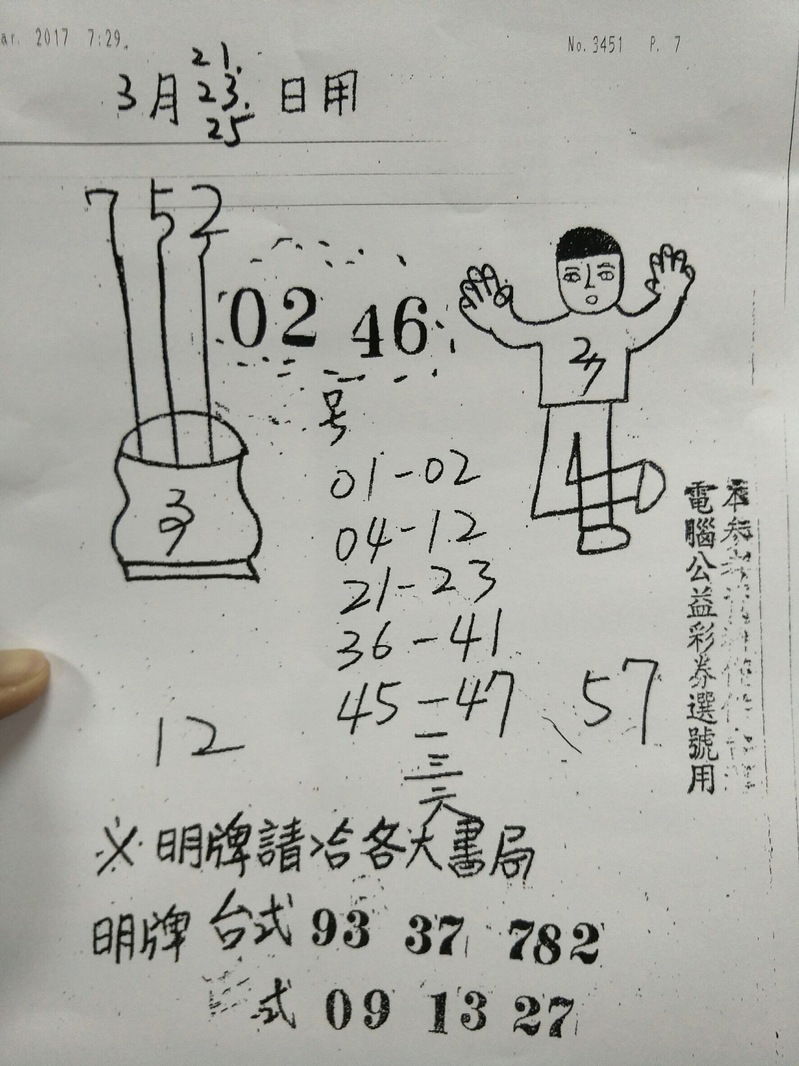 ar. 2017 7:29.
No.3451 P. 7
3月 21. 23. 25 日用
7 5 2
02 46
号
27
01-02
04-12
21-23
36-41
45-47
57
12
一
三
六
電腦公益彩券選號用
※明牌請洽各大書局
明牌 台式 93 37 782
式 09 13 27